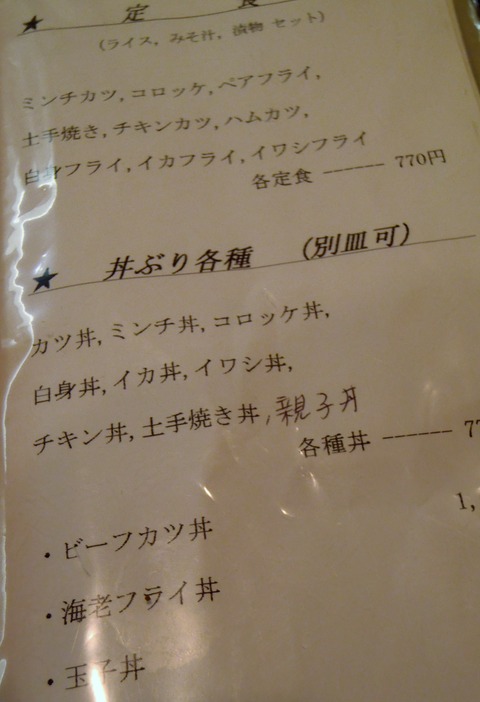 ★ 定 食
(ライス, みそ汁, 漬物 セット)
ミンチカツ, コロッケ, ペアフライ,
土手焼き, チキンカツ, ハムカツ,
白身フライ, イカフライ, イワシフライ
各定食 ------ 770円
★ 丼ぶり各種 (別皿可)
カツ丼, ミンチ丼, コロッケ丼,
白身丼, イカ丼, イワシ丼,
チキン丼, 土手焼き丼, 親子丼
各種丼 ------ 77
1,
・ビーフカツ丼
・海老フライ丼
・玉子丼